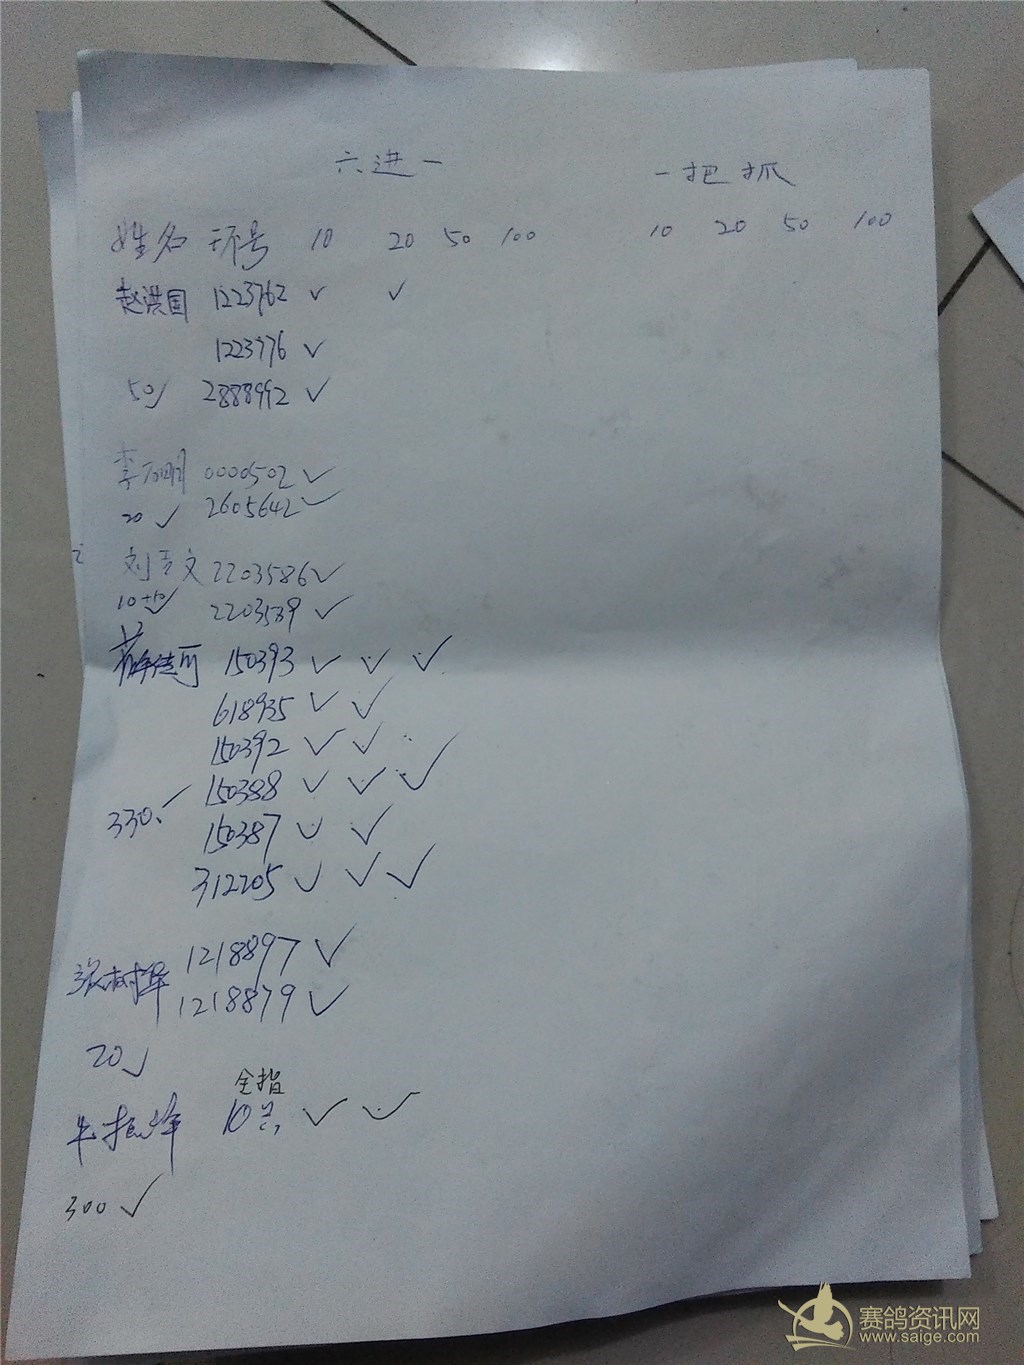 六进一 一把抓
姓名 环号 10 20 50 100 10 20 50 100
赵洪国 1223762 ✓ ✓
1223776 ✓
50 ✓ 2888992 ✓
李 明 0000502 ✓
20 ✓ 2605642 ✓
刘 文 2203586 ✓
10+10 ✓ 2203539 ✓
薛德 150393 ✓ ✓ ✓
618935 ✓ ✓
150392 ✓ ✓
150388 ✓ ✓ ✓
330 ✓ 150387 ✓ ✓
312205 ✓ ✓ ✓
张树军 1218897 ✓
1218879 ✓
20 ✓
全指
牛振峰 10 ✓ ✓
300 ✓
赛鸽资讯网
www.saige.com